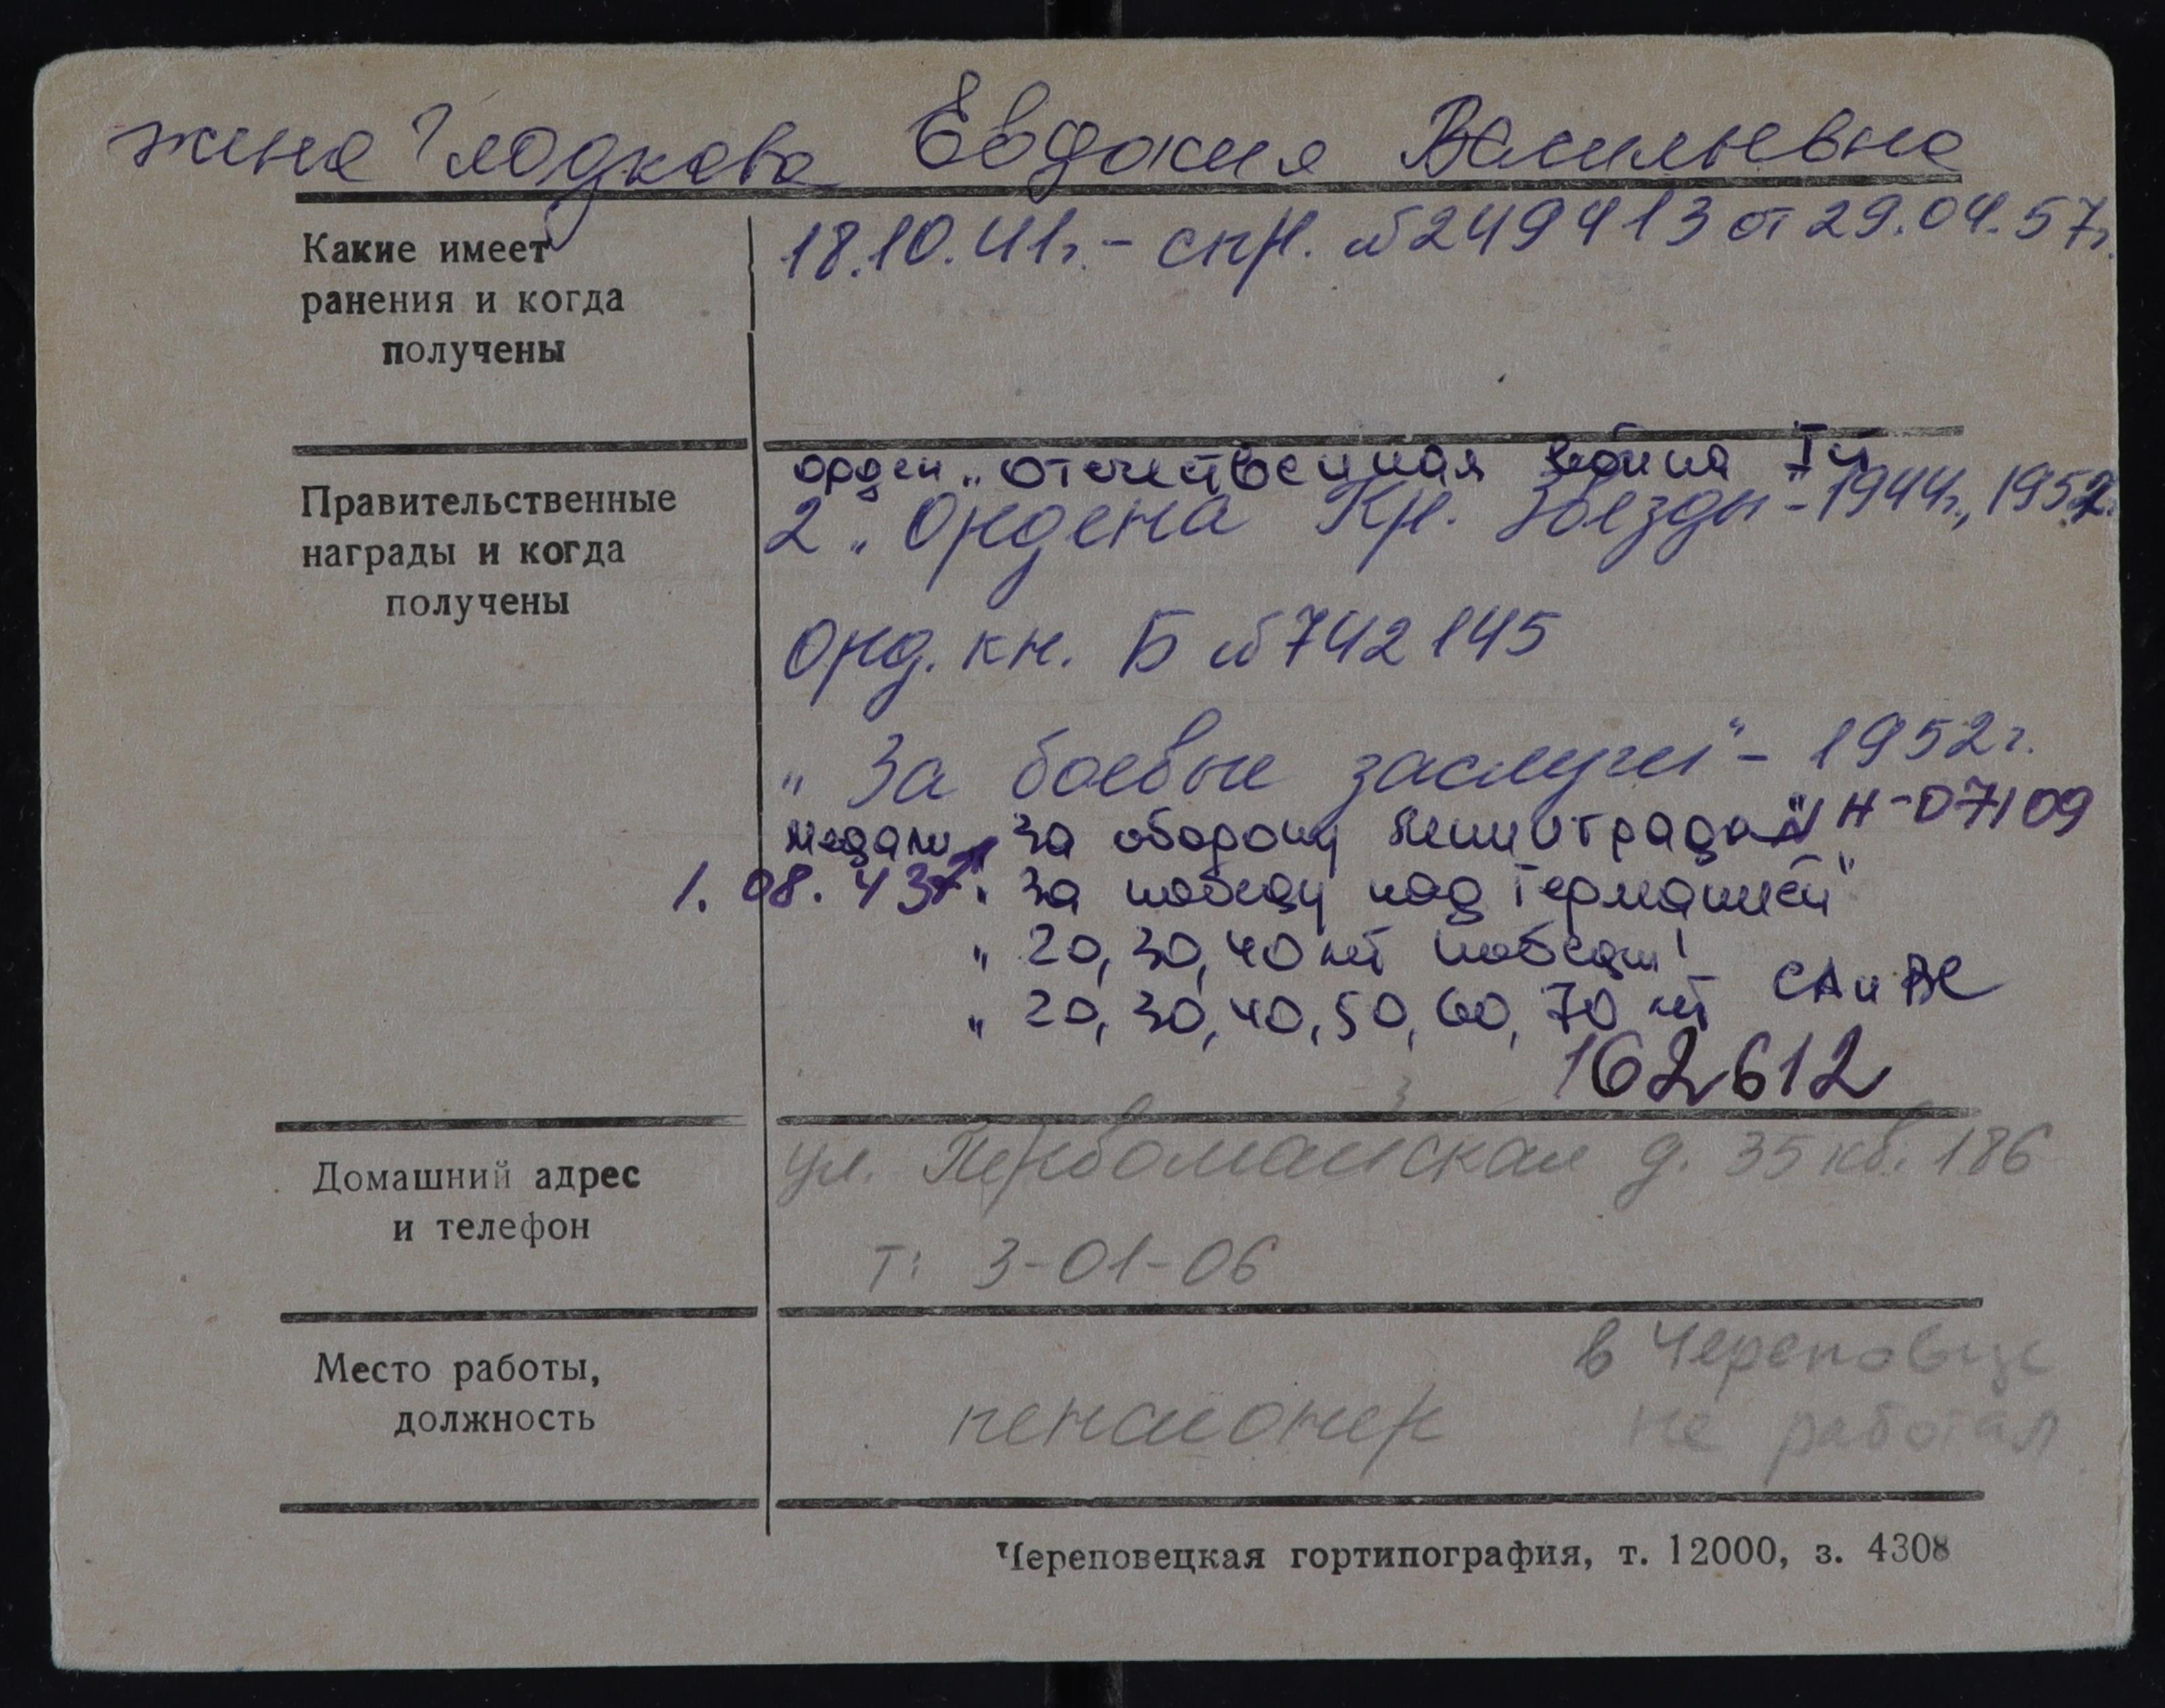 жена Гладкова Евдокия Васильевна
Какие имеет
ранения и когда
получены
18.10.41г. - спр. №249413 от 29.04.57г.
орден „Отечественная война I й
Правительственные
награды и когда
получены
2 „Ордена Кр. Звезды - 1944г., 1952г.
Орд. кн. Б №742145
„За боевые заслуги" - 1952г.
медали „За оборону Ленинграда" Н-07109
1.08.43г. „За победу над Германией"
„ 20, 30, 40 лет победы"
„ 20, 30, 40, 50, 60, 70 лет СА и ВС
162612
Домашний адрес
и телефон
ул. Первомайская д. 35 кв. 186
т: 3-01-06
Место работы,
должность
пенсионер
в Череповце
не работал
Череповецкая гортипография, т. 12000, з. 4308